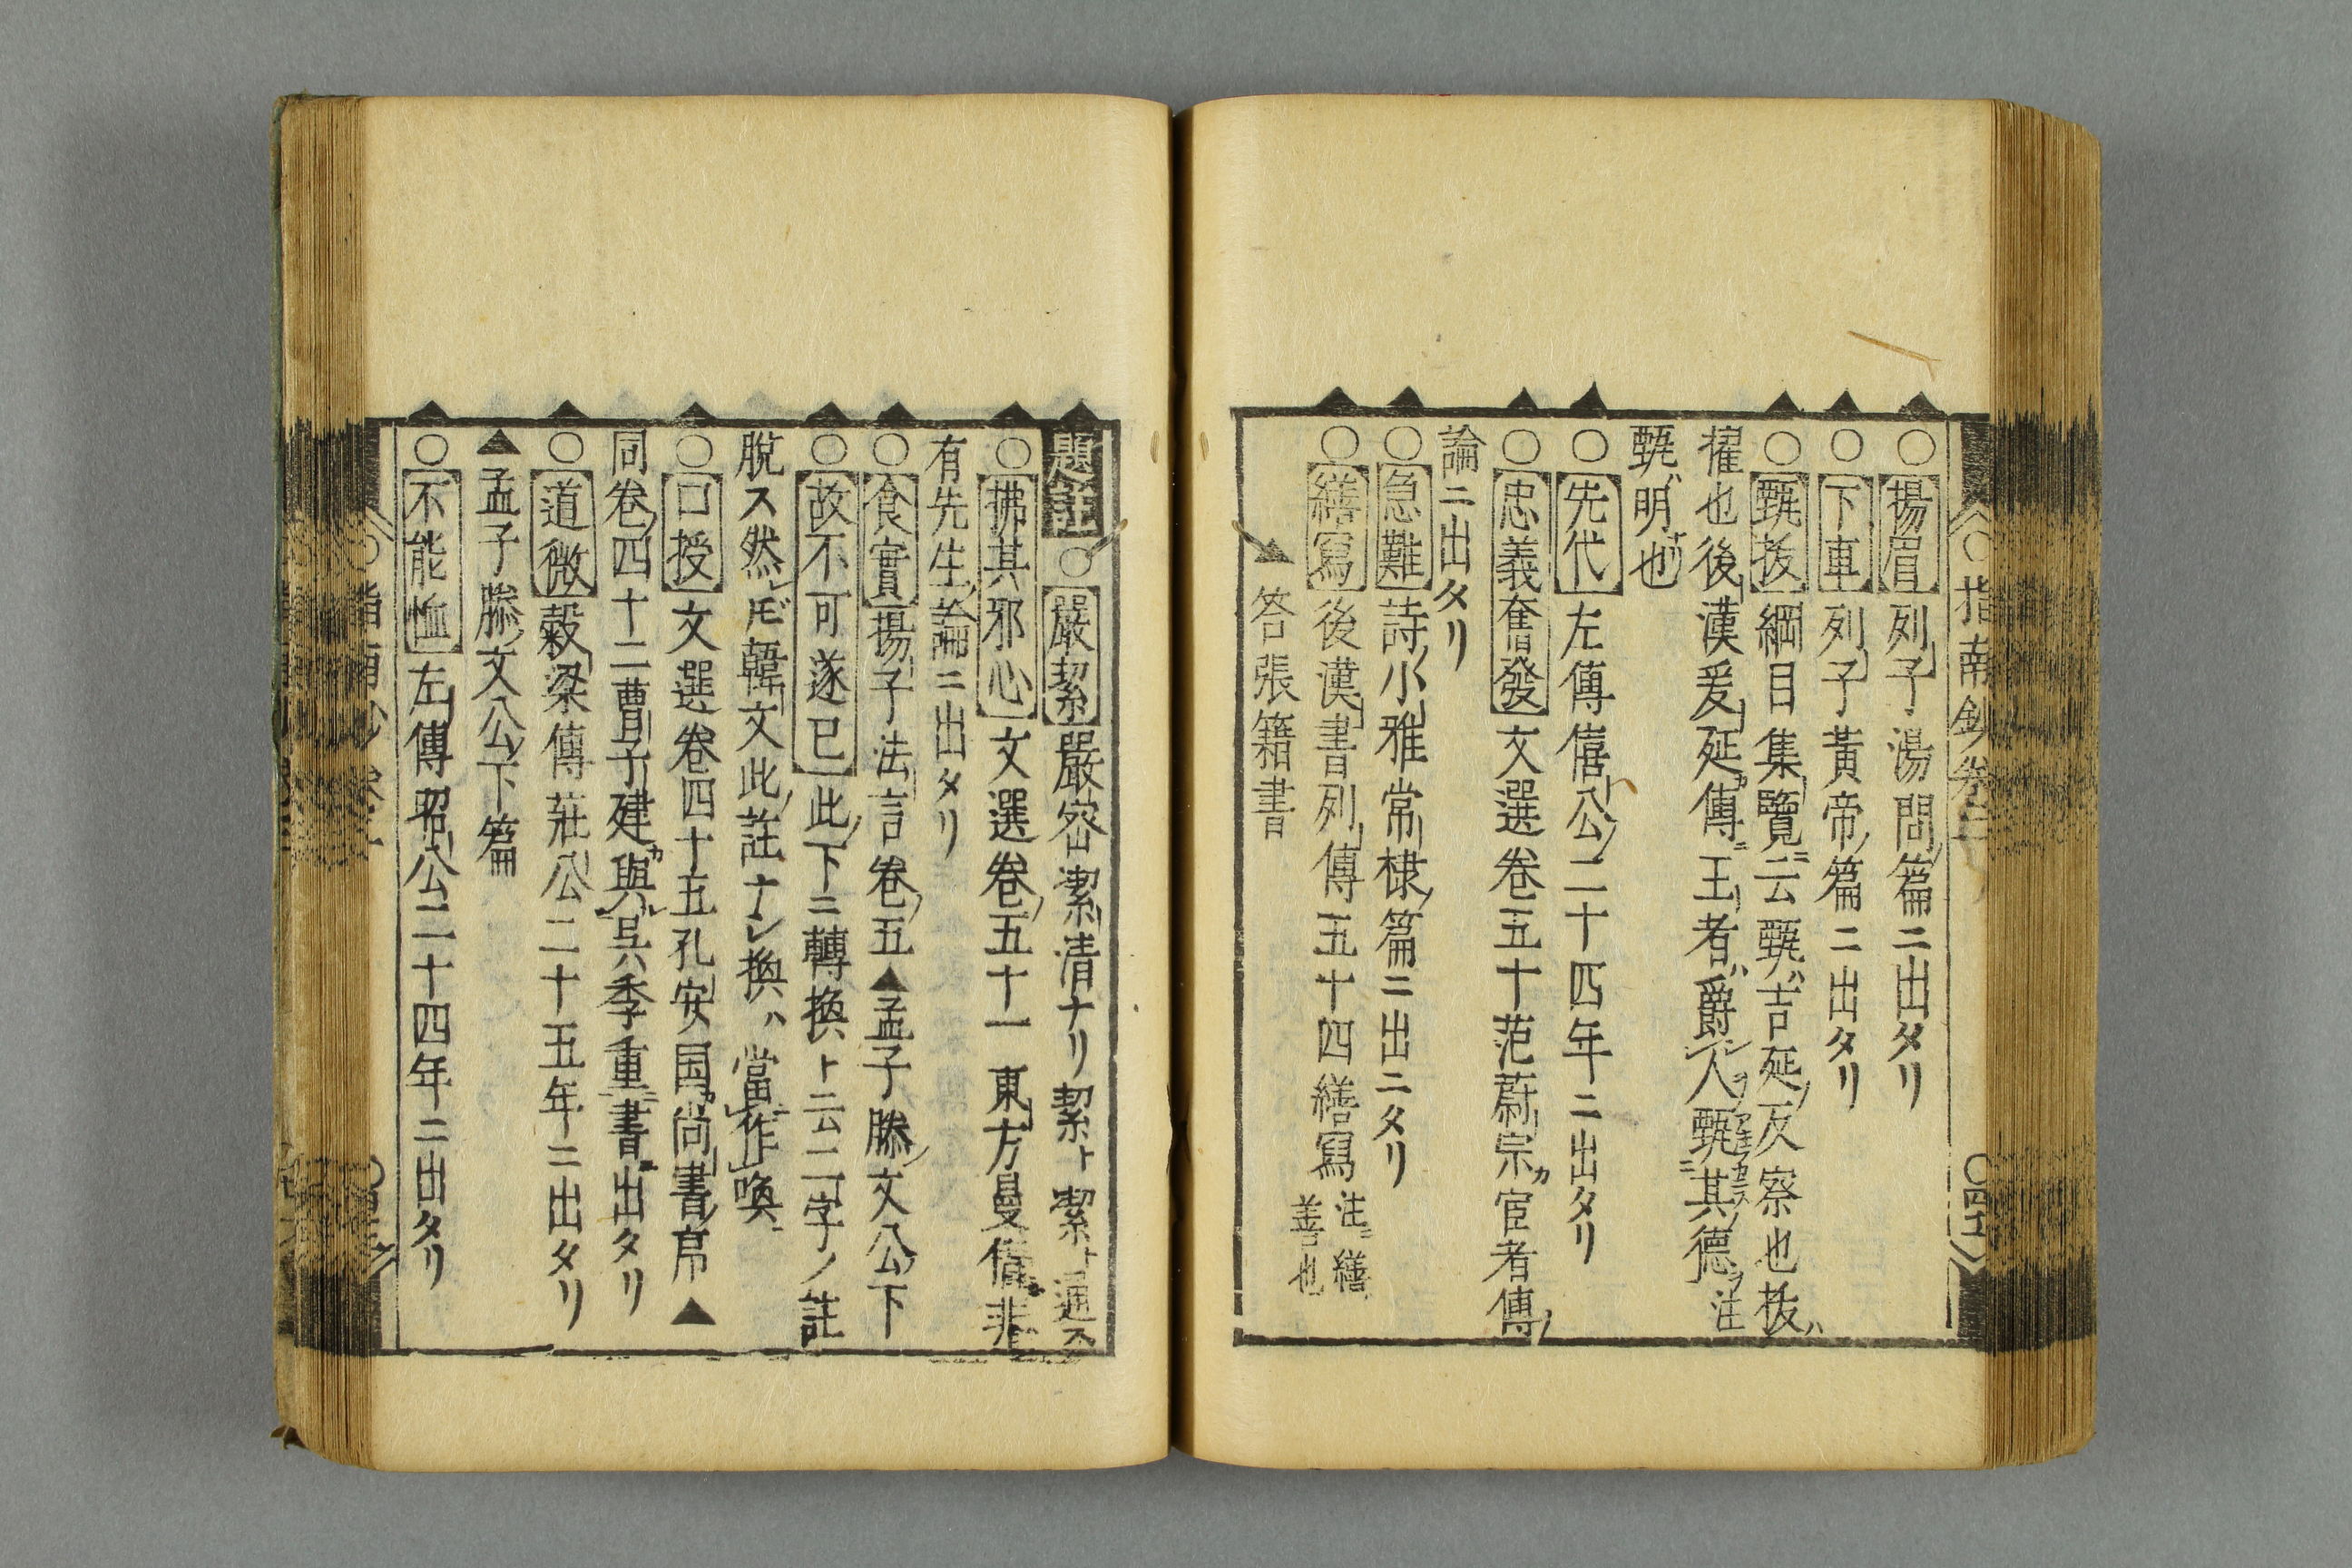 ○揚眉列子湯問篇ニ出タリ
○下車列子黃帝ノ篇ニ出タリ
○甄抜綱目集覽ニ云甄ハ吉延ノ反察也抜ハ
擢也後漢爰延カ傳ニ王者ハ爵レ人ヲ甄ニ其德ヲ注
甄ハ明也
○先代左傳僖公ノ二十四年ニ出タリ
○忠義奮發文選卷五十范蔚宗カ宦者傳ノ
論ニ出タリ
○急難詩ノ小雅常棣ノ篇ニ出ニタリ
○繕寫後漢書列傳五十四繕寫注ニ繕ハ善也
▲答張籍書
題註○嚴絜嚴密潔清ナリ絜ト潔ト通ス
○拂其邪心文選卷ノ五十一東方曼倩非
有先生ノ論ニ出タリ
○食實揚子法言卷ノ五▲孟子滕ノ文公下
○故不可遂已此ノ下ニ轉換ト云二字ノ註
脫ス然レ𪜈韓文此ノ註ナシ換ハ當作喚
○口授文選卷四十五孔安国カ尚書ノ序▲
同卷ノ四十二曹子建カ與吴季重書ニ出タリ
○道微穀梁傳莊公二十五年ニ出タリ
▲孟子滕ノ文公ノ下篇
○不能恤左傳昭公二十四年ニ出タリ